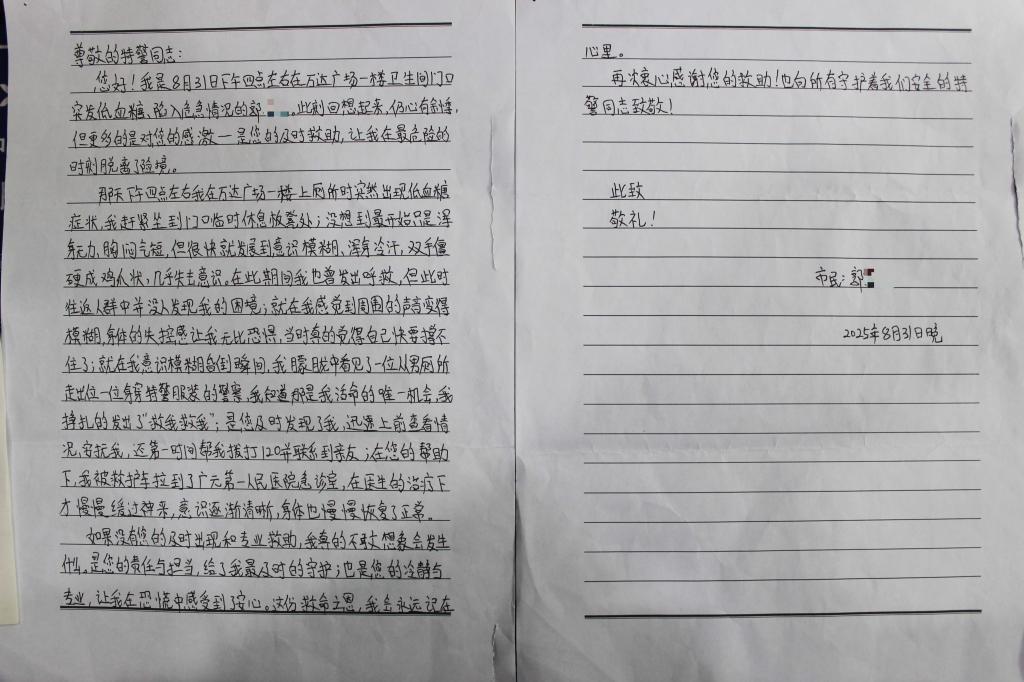 尊敬的特警同志:
您好!我是8月31日下午四点左右在万达广场一楼卫生间门口
突发低血糖、陷入危急情况的郭 。此刻回想起来,仍心有余悸,
但更多的是对您的感激一是您的及时救助,让我在最危险的
时刻脱离了险境。
那天下午四点左右我在万达广场一楼上厕所时突然出现低血糖
症状,我赶紧坐到门口临时休息放凳处;没想到最开始只是浑
身无力、胸闷气短,但很快就发展到意识模糊、浑身冷汗,双手僵
硬成鸡爪状,几乎失去意识。在此期间我也曾发出呼救,但此时
往返人群中并没人发现我的困境;就在我感觉到周围的声音变得
模糊,身体的失控感让我无比恐惧,当时真的觉得自己快要撑不
住了;就在我意识模糊昏倒瞬间,我朦胧中看见了一位从男厕所
走出位一位身穿特警服装的警察,我知道那是我活命的唯一机会,我
挣扎的发出了“救我救我”;是您及时发现了我,迅速上前查看情
况,安抚我,还第一时间帮我拨打120并联系到亲友;在您的帮助
下,我被救护车拉到了广元第一人民医院急诊室,在医生的治疗下
才慢慢缓过神来,意识逐渐清晰,身体也慢慢恢复了正常。
如果没有您的及时出现和专业救助,我真的不敢想象会发生
什么。是您的责任与担当,给了我最及时的守护;也是您的冷静与
专业,让我在恐慌中感受到了安心。这份救命之恩,我会永远记在
心里。
再次衷心感谢您的救助!也向所有守护着我们安全的特
警同志致敬!
此致
敬礼!
市民:郭
2025年8月31日晚